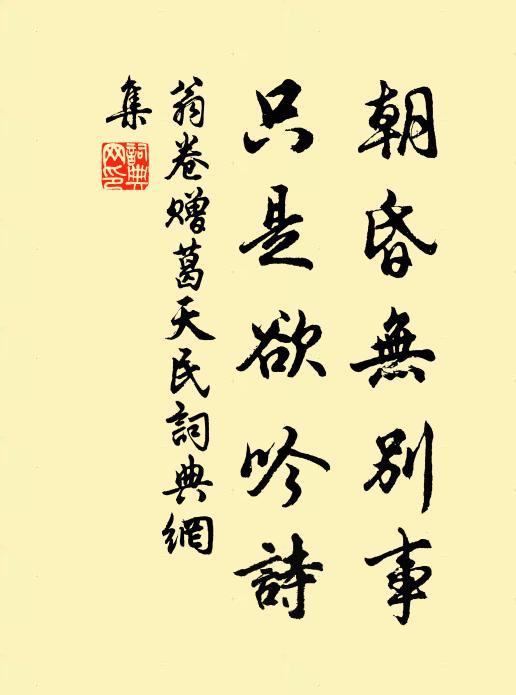 朝昏無別事
只是欲吟詩
翁卷贈葛天民詞典網
集
詞典網印